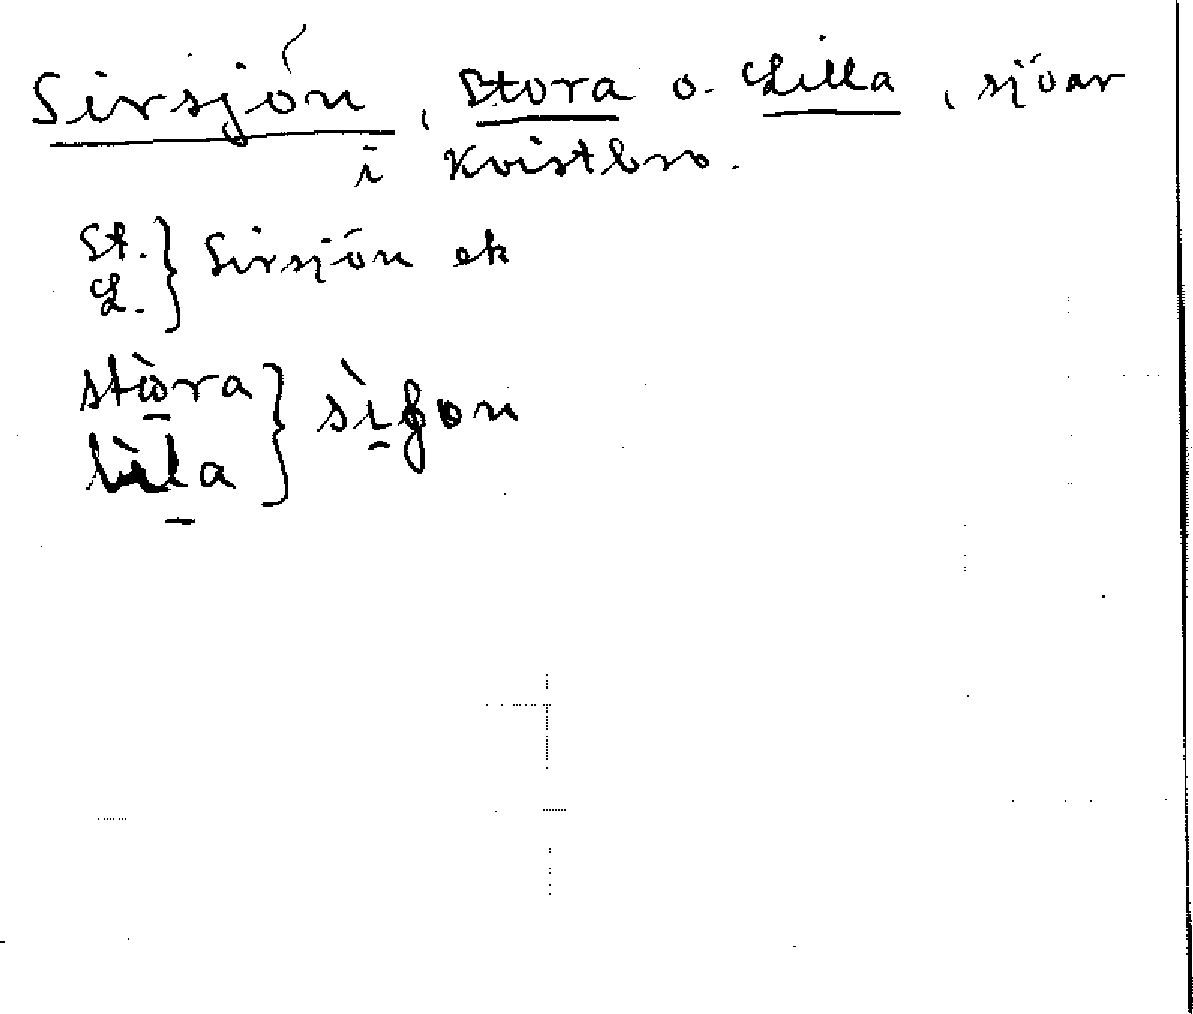 Sirsjön, Stora o. Lilla, sjöar
i Kvistbro.
St. } Sirsjön ek
L.
stòra
lìla